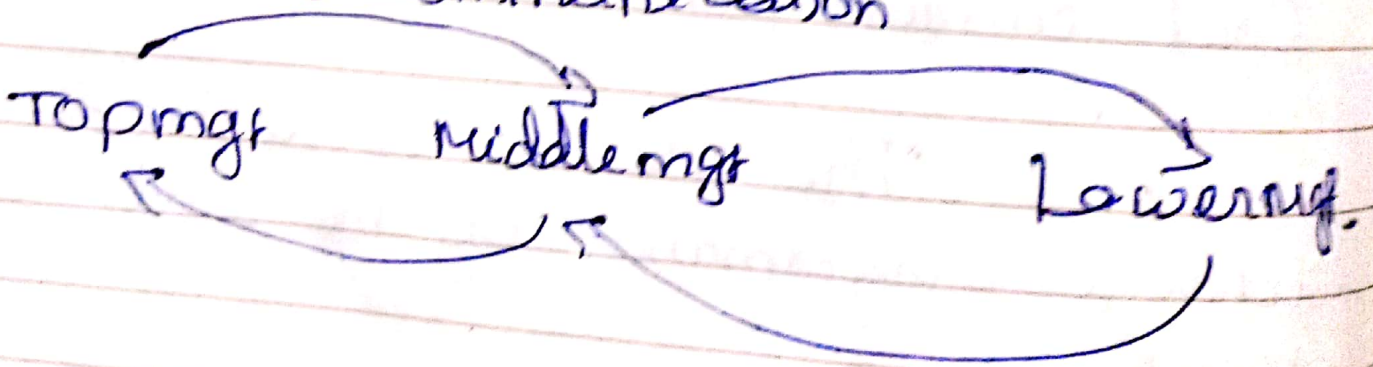 Top mgt Middle mgt Lower mgt.